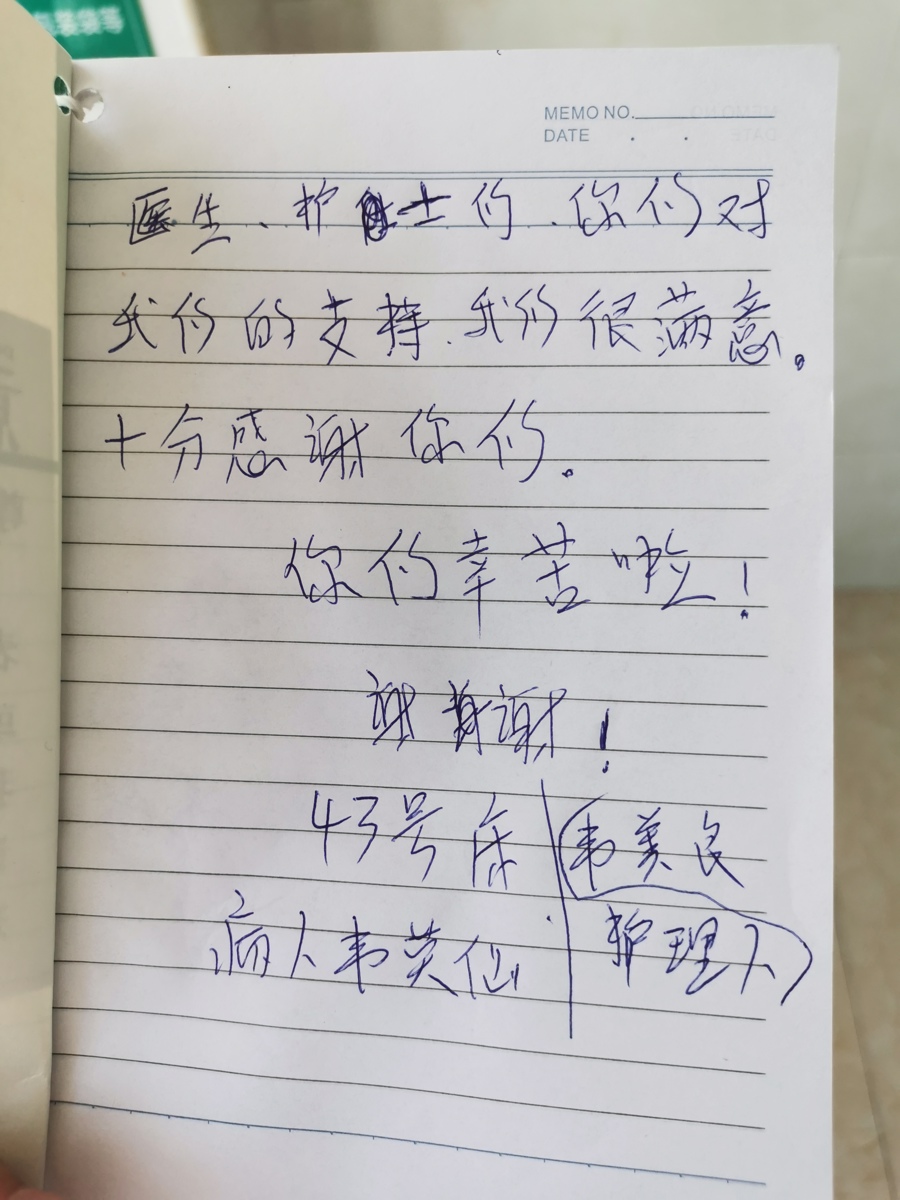 包装袋等
MEMO NO.
DATE . .
医生、护士们、你们对
我们的支持、我们很满意。
十分感谢你们。
你们辛苦啦!
谢谢!
43号床
韦美良
病人韦英仙
护理人